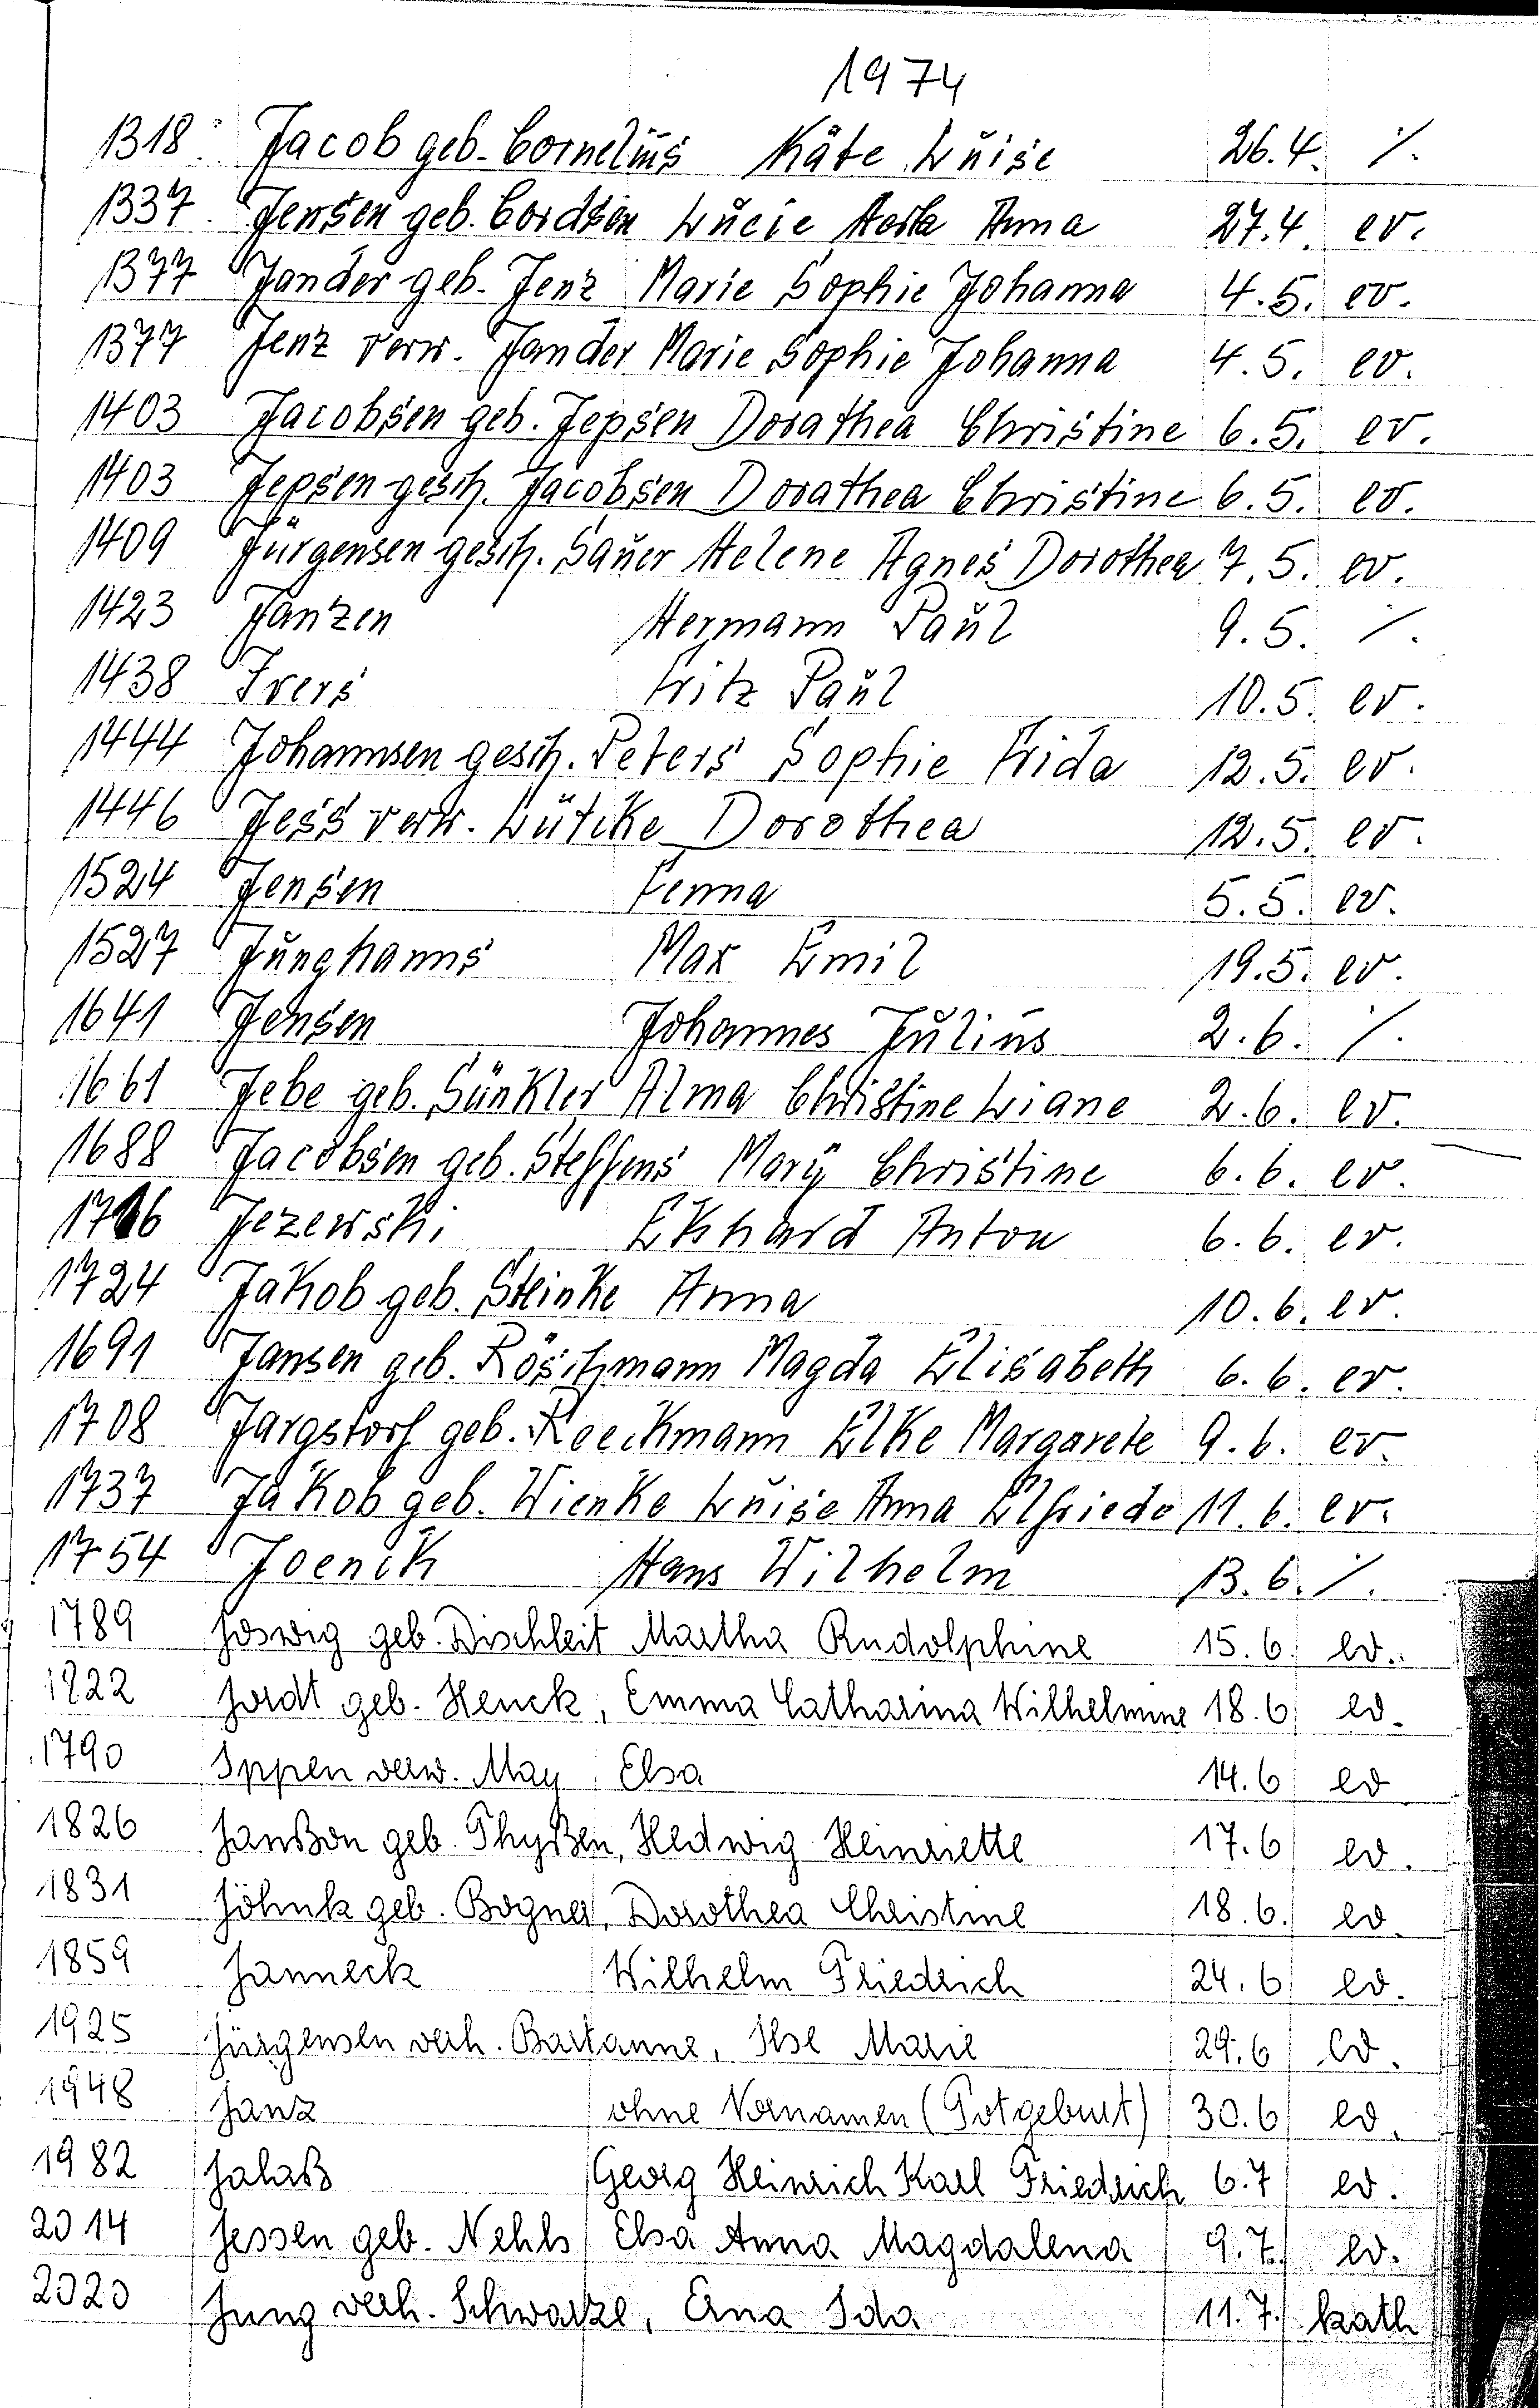 1974
1318 Jacob geb. Cornelius Käte Luise 26.4. %
1337 Jensen geb. Cordsen Lucie Herta Anna 27.4. ev.
1377 Jander geb. Jenz Marie Sophie Johanna 4.5. ev.
1377 Jenz verw. Jander Marie Sophie Johanna 4.5. ev.
1403 Jacobsen geb. Jepsen Dorathea Christine 6.5. ev.
1403 Jepsen gesch. Jacobsen Dorathea Christine 6.5. ev.
1409 Jürgensen gesch. Sauer Helene Agnes Dorothea 7.5. ev.
1423 Janzen Hermann Paul 9.5. %
1438 Ivers Fritz Paul 10.5. ev.
1444 Johannsen gesch. Peters Sophie Frida 12.5. ev.
1446 Jess verw. Lütcke Dorothea 12.5. ev.
1524 Jensen Fenna 5.5. ev.
1527 Junghanns Max Emil 19.5. ev.
1641 Jensen Johannes Julius 2.6. %
1661 Jebe geb. Sünkler Alma Christine Liane 2.6. ev.
1688 Jacobsen geb. Steffens Mary Christine 6.6. ev.
1716 Jezewski Ekhard Anton 6.6. ev.
1724 Jakob geb. Steinke Anna 10.6. ev.
1691 Jansen geb. Röschmann Magda Elisabeth 6.6. ev.
1708 Jargstorf geb. Reeckmann Elke Margarete 9.6. ev.
1737 Jakob geb. Wienke Luise Anna Elfriede 11.6. ev.
1754 Joenck Hans Wilhelm 13.6. %
1789 Joswig geb. Dischleit Martha Rudolphine 15.6. ev.
1822 Jordt geb. Henck, Emma Catharina Wilhelmine 18.6 ev.
1790 Ippen verw. May, Elsa 14.6 ev
1826 Janßon geb. Thyßen, Hedwig Heinriette 17.6 ev.
1831 Jöhnk geb. Bogner, Dorothea Christine 18.6. ev.
1859 Janneck Wilhelm Friedrich 24.6 ev.
1925 Jürgensen verh. Bartanne, Ilse Marie 29.6 ev.
1948 Janz ohne Vornamen (Totgeburt) 30.6 ev.
1982 Jalaß Georg Heinrich Karl Friedrich 6.7 ev.
2014 Jessen geb. Nehls Elsa Anna Magdalena 9.7. ev.
2020 Jung verh. Schwarze, Erna Ida 11.7. kath